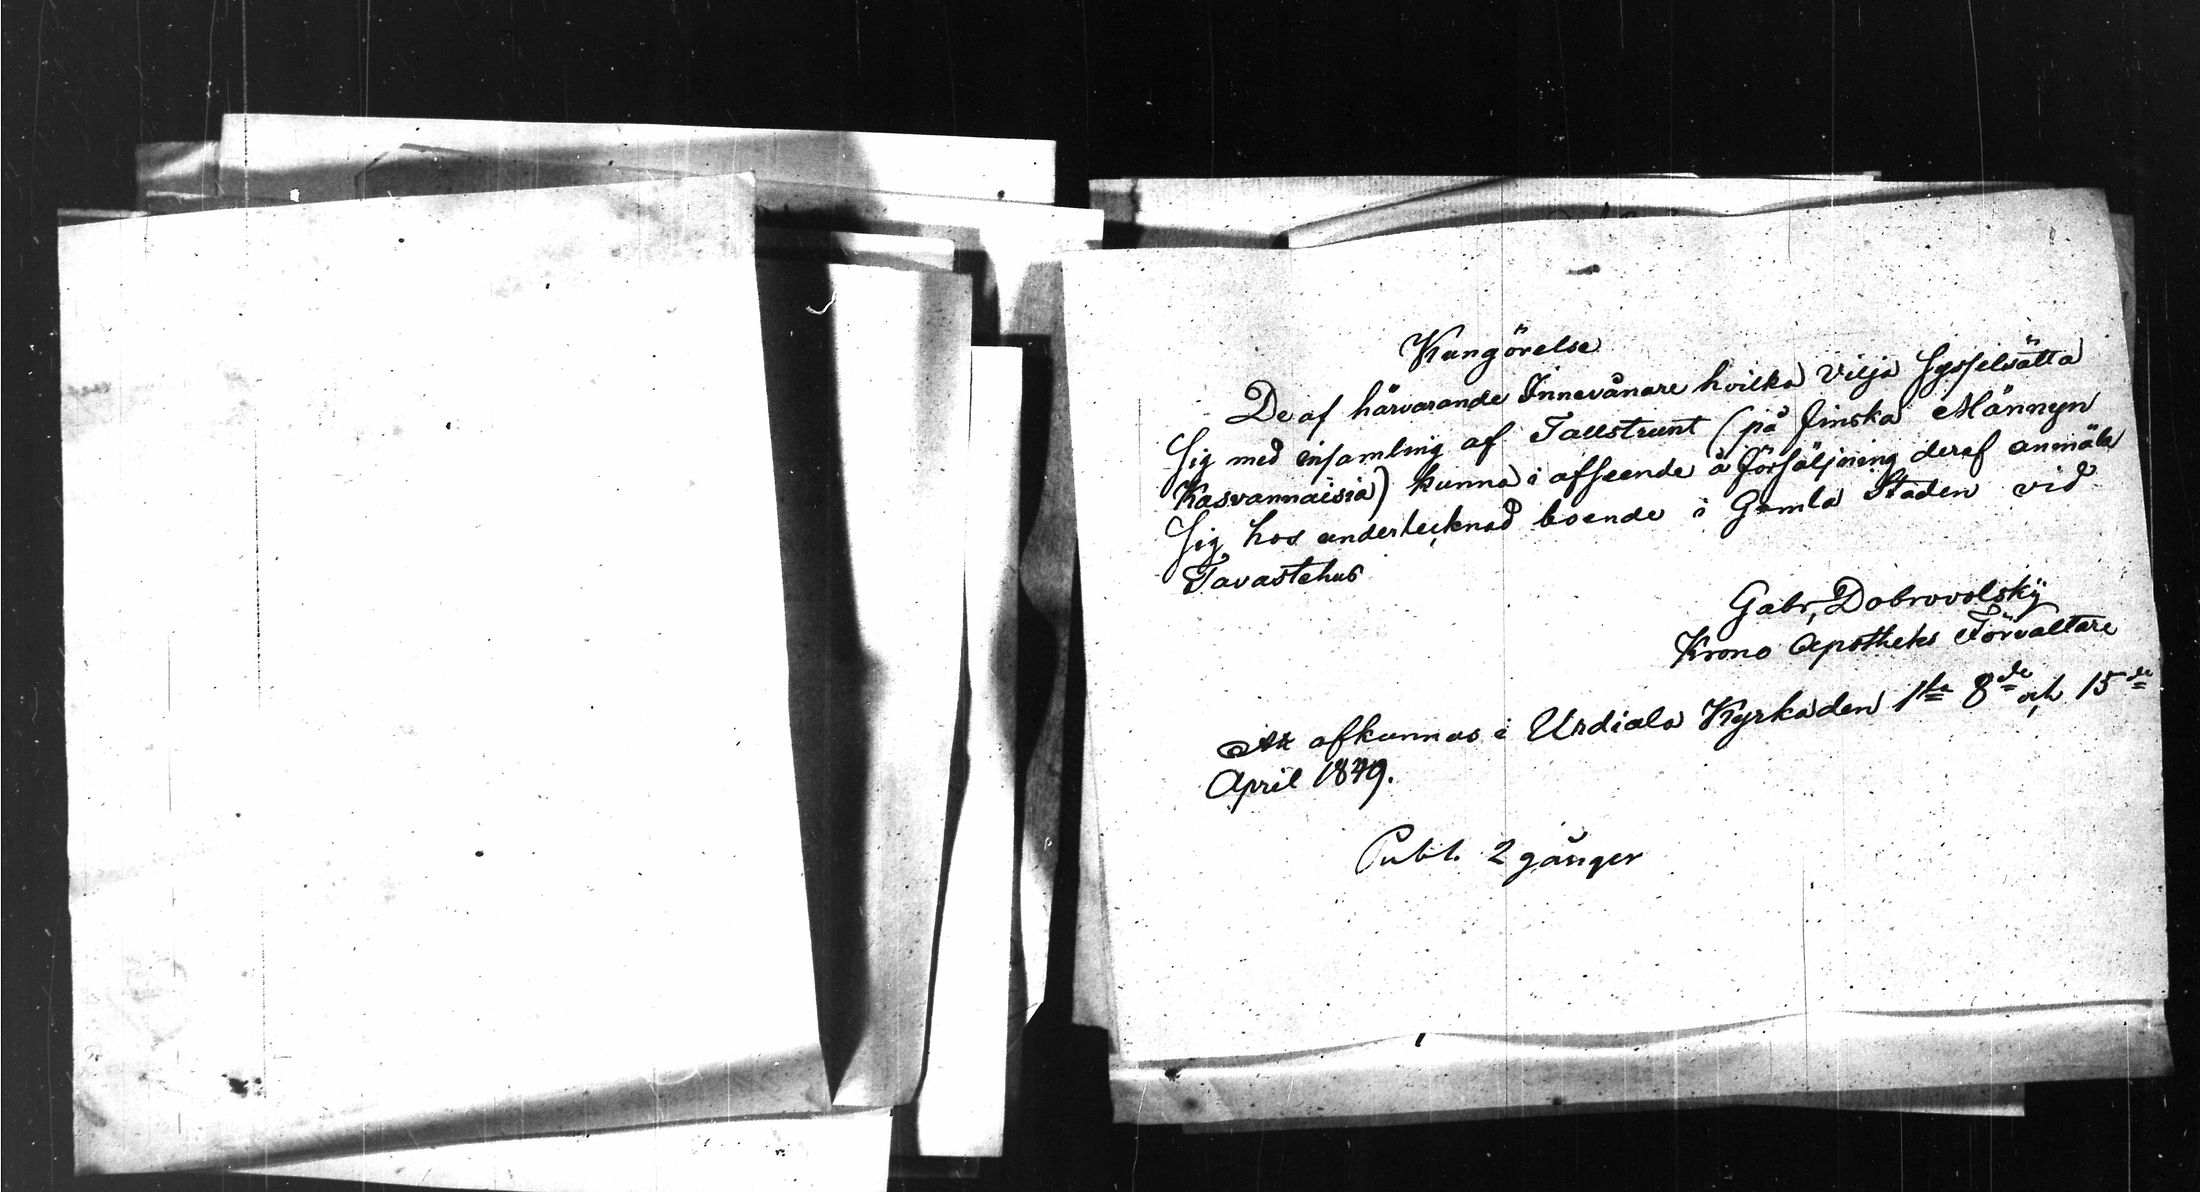 Kungörelse
De af härvarande Innevånare hvilka vilja sysselsätta
sig med insamling af Tallstrunt (på finska Männyn
Kasvannaisia) kunna i afseende å försäljning deraf anmäla
sig hos undertecknad boende i Gamla Staden vid
Tavastehus
Gabr, Dobrovolskÿ
Krono Apotheks Förvaltare
At afkunnas i Urdiala Kyrka den 1ta 8de och 15de
April 1849.
Publ. 2 gånger